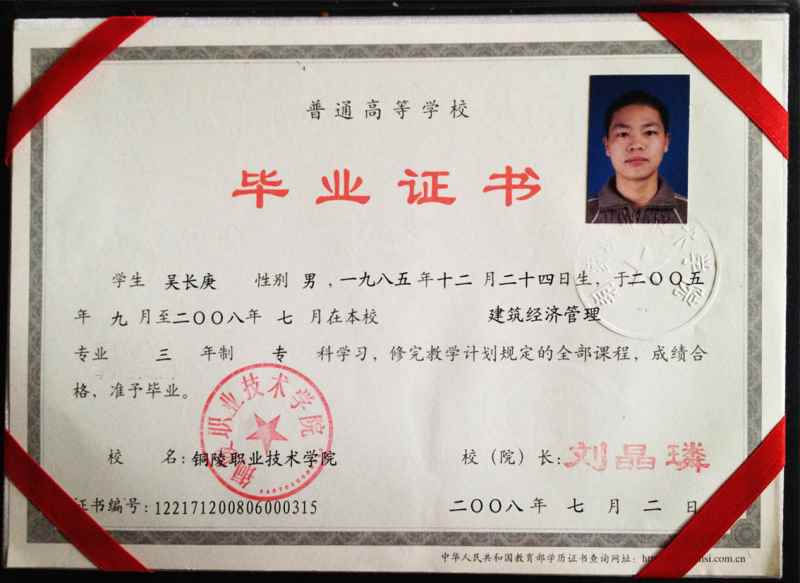 普通高等学校
毕业证书
学生 吴长庚 性别 男，一九八五年十二月二十四日生，于二〇〇五
年 九 月至二〇〇八年 七 月在本校 建筑经济管理
专业 三 年制 专 科学习，修完教学计划规定的全部课程，成绩合
格，准予毕业。
铜陵职业技术学院
校 名：铜陵职业技术学院 校（院）长：刘晶璘
证书编号：122171200806000315 二〇〇八年 七 月 二 日
中华人民共和国教育部学历证书查询网址：